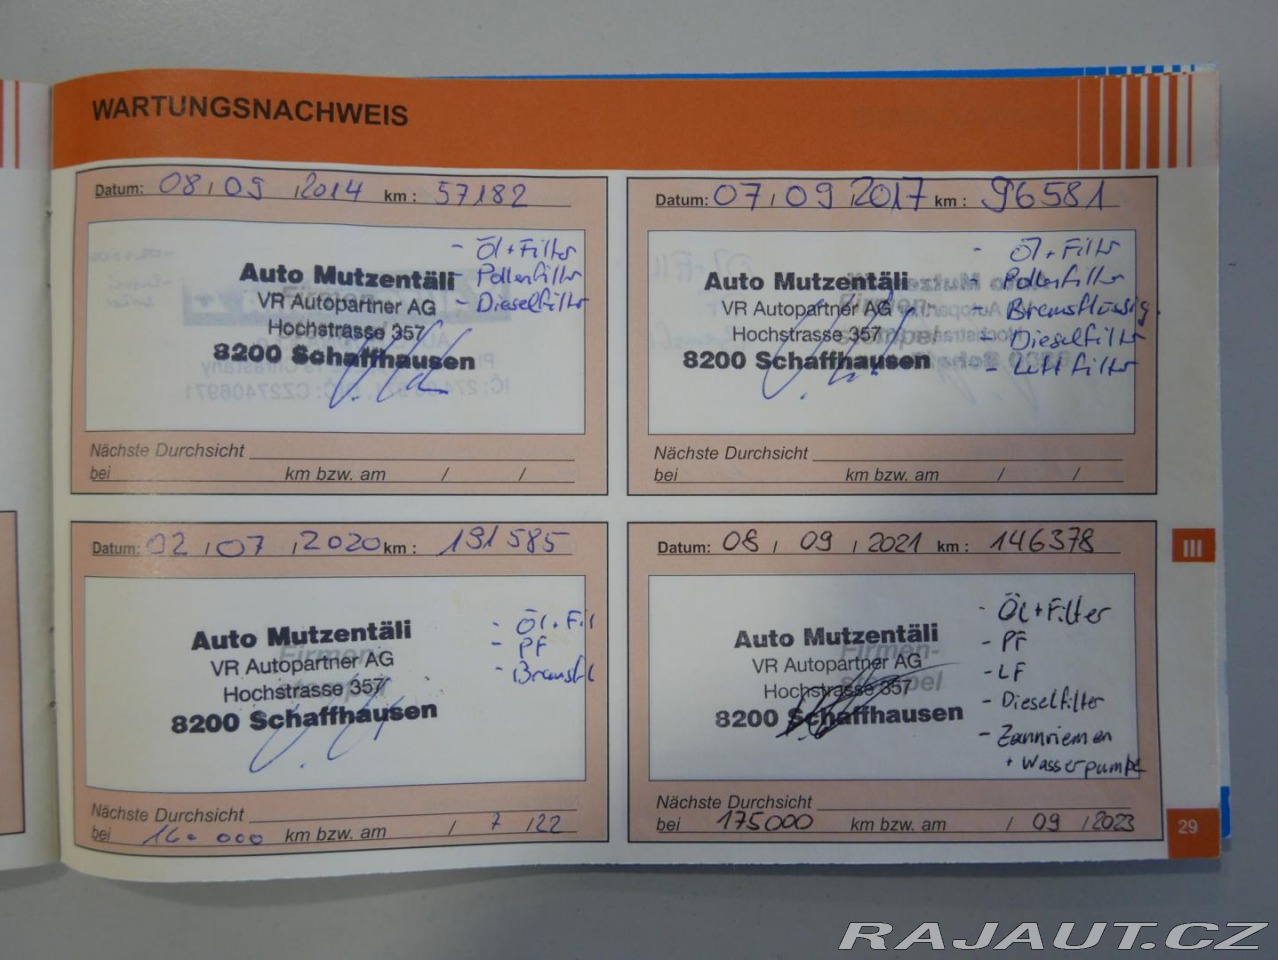 WARTUNGSNACHWEIS
Datum: 08 / 09 / 2014 km : 57182
- Öl + Filter
- Pollenfilter
- Dieselfilter
Auto Mutzentäli
VR Autopartner AG
Hochstrasse 357
8200 Schaffhausen
Nächste Durchsicht
bei km bzw. am / /
Datum: 07 / 09 / 2017 km : 96581
- Öl + Filter
- Pollenfilter
- Bremsflüssig.
- Dieselfilter
- Luftfilter
Auto Mutzentäli
VR Autopartner AG
Hochstrasse 357
8200 Schaffhausen
Nächste Durchsicht
bei km bzw. am / /
Datum: 02 / 07 / 2020 km : 131585
- Öl + Fil
- PF
- Bremsfl
Auto Mutzentäli
VR Autopartner AG
Hochstrasse 357
8200 Schaffhausen
Firmen-
stempel
Nächste Durchsicht
bei 160 000 km bzw. am / 7 / 22
Datum: 08 / 09 / 2021 km : 146378
- Öl + Filter
- PF
- LF
- Dieselfilter
- Zannriemen
+ Wasserpumpe
Auto Mutzentäli
VR Autopartner AG
Hochstrasse 357
8200 Schaffhausen
Firmen-
stempel
Nächste Durchsicht
bei 175000 km bzw. am / 09 / 2023
III
29
RAJAUT.CZ